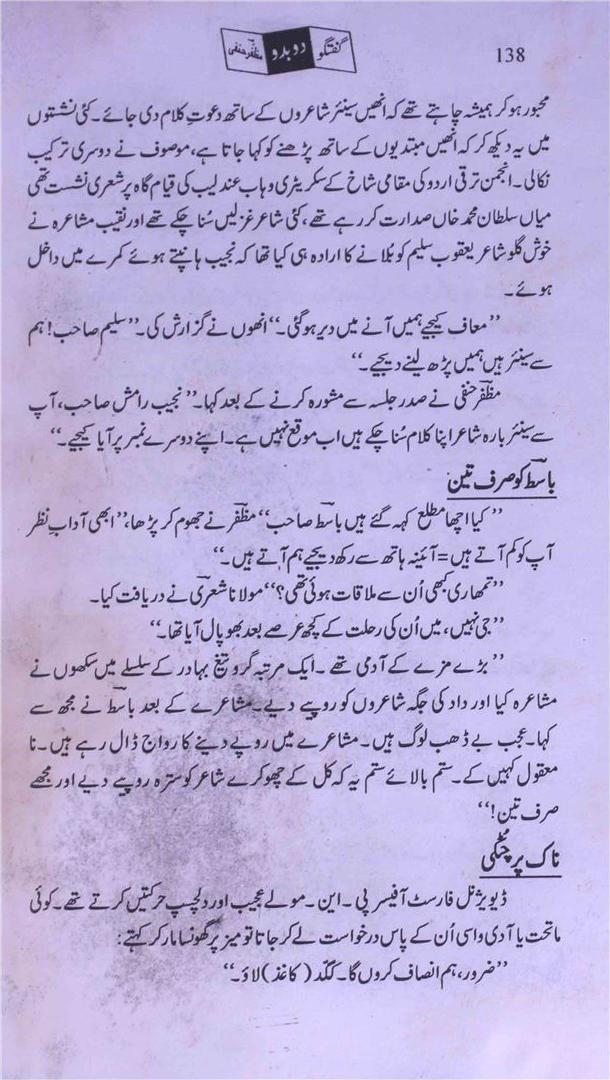 138
گفتگو دو بدو مظفر حنفی
مجبور ہو کر ہمیشہ چاہتے تھے کہ انھیں سینئر شاعروں کے ساتھ دعوتِ کلام دی جائے۔ کئی نشستوں
میں یہ دیکھ کر کہ انھیں مبتدیوں کے ساتھ پڑھنے کو کہا جاتا ہے، موصوف نے دوسری ترکیب
نکالی۔ انجمن ترقی اردو کی مقامی شاخ کے سکریٹری وہاب عندلیب کی قیام گاہ پر شعری نشست تھی
میاں سلطان محمد خاں صدارت کر رہے تھے، کئی شاعر غزلیں سُنا چکے تھے اور نقیب مشاعرہ نے
خوش گلو شاعر یعقوب سلیم کو بلانے کا ارادہ ہی کیا تھا کہ نجیب ہانپتے ہوئے کمرے میں داخل
ہوئے۔
’’معاف کیجیے ہمیں آنے میں دیر ہو گئی۔‘‘ انھوں نے گزارش کی۔ ’’سلیم صاحب! ہم
سے سینئر ہیں ہمیں پڑھ لینے دیجیے۔‘‘
مظفر حنفی نے صدر جلسہ سے مشورہ کرنے کے بعد کہا۔ ’’نجیب رامش صاحب، آپ
سے سینئر بارہ شاعر اپنا کلام سُنا چکے ہیں اب موقع نہیں ہے۔ اپنے دوسرے نمبر پر آیا کیجیے۔‘‘
باسطؔ کو صرف تین
’’کیا اچھا مطلع کہہ گئے ہیں باسطؔ صاحب‘‘ مظفرؔ نے جھوم کر پڑھا، ’’ابھی آدابِ نظر
آپ کو کم آتے ہیں = آئینہ ہاتھ سے رکھ دیجیے ہم آتے ہیں۔‘‘
’’تمھاری کبھی اُن سے ملاقات ہوئی تھی؟‘‘ مولانا شعریؔ نے دریافت کیا۔
’’جی نہیں، میں اُن کی رحلت کے کچھ عرصے بعد بھوپال آیا تھا۔‘‘
’’بڑے مزے کے آدمی تھے۔ ایک مرتبہ گرو تیغ بہادر کے سلسلے میں سکھوں نے
مشاعرہ کیا اور داد کی جگہ شاعروں کو روپے دیے۔ مشاعرے کے بعد باسطؔ نے مجھ سے
کہا۔ عجب بے ڈھب لوگ ہیں۔ مشاعرے میں روپے دینے کا رواج ڈال رہے ہیں۔ نا
معقول کہیں کے۔ ستم بالائے ستم یہ کہ کل کے چھوکرے شاعر کو سترہ روپیے دیے اور مجھے
صرف تین!‘‘
ناک پر چٹکی
ڈیویژنل فارسٹ آفیسر پی۔ این۔ مولے عجیب اور دلچسپ حرکتیں کرتے تھے۔ کوئی
ماتحت یا آدی واسی اُن کے پاس درخواست لے کر جاتا تو میز پر گھونسا مار کر کہتے:
’’ضرور، ہم انصاف کروں گا۔ کگد (کاغذ) لاؤ۔‘‘